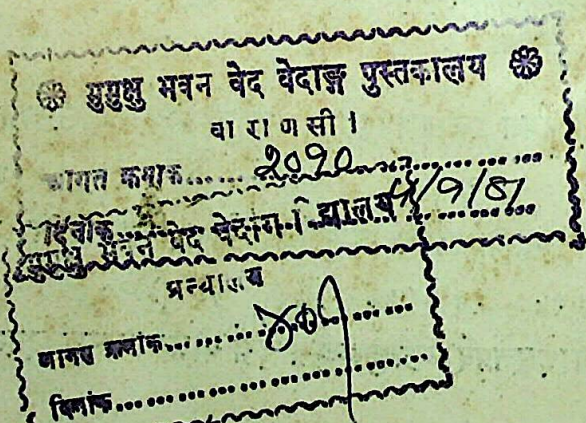 ❀ मुमुक्षु भवन वेद वेदाङ्ग पुस्तकालय ❀
वा रा ण सी ।
आगत क्रमांक...... 2090
दिनांक...... /9/81
मुमुक्षु भवन वेद वेदांग विद्यालय
ग्रन्थालय
आगत क्रमांक......
दिनांक......